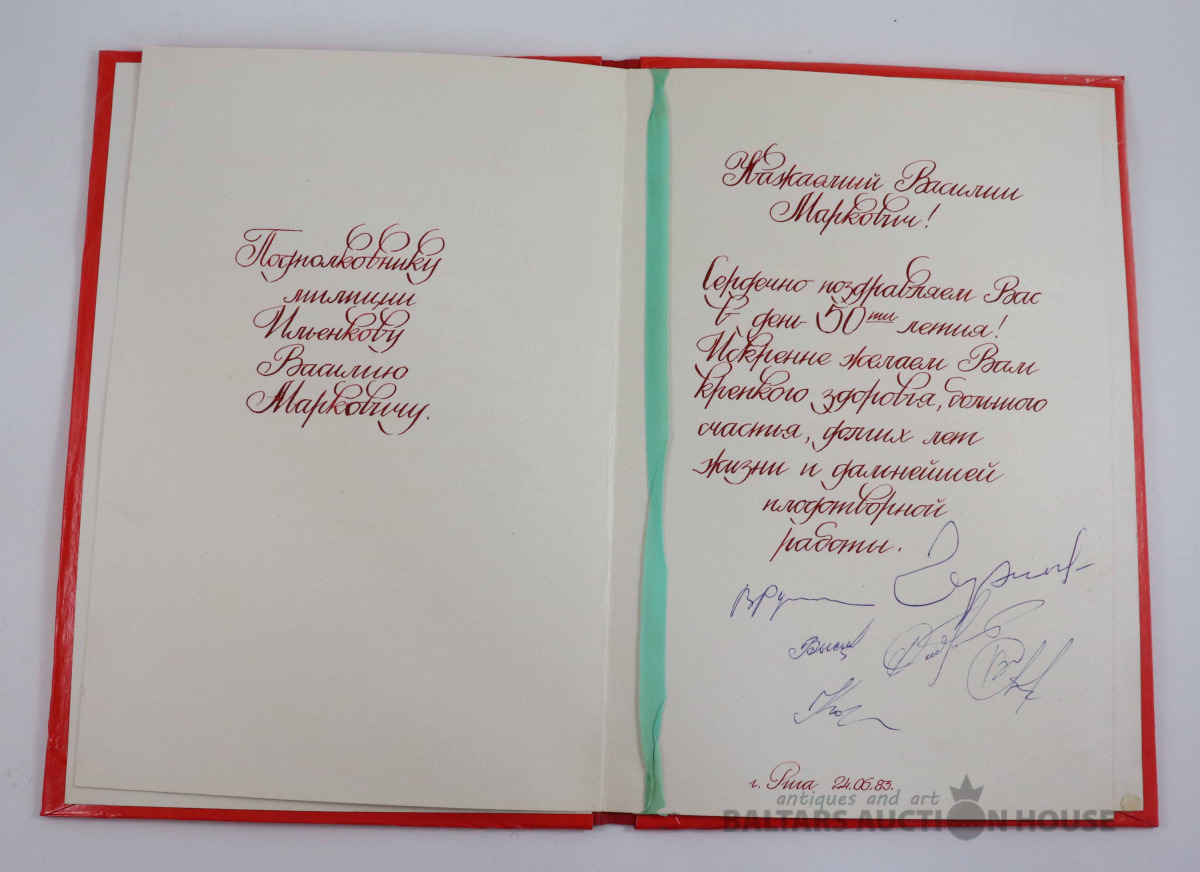 Подполковнику
милиции
Ильенкову
Василию
Марковичу.
Уважаемый Василий
Маркович!
Сердечно поздравляем Вас
в день 50ти летия!
Искренне желаем Вам
крепкого здоровья, большого
счастья, долгих лет
жизни и дальнейшей
плодотворной
работы.
г. Рига 24.06.83.
antiques and art
BALTARS AUCTION HOUSE